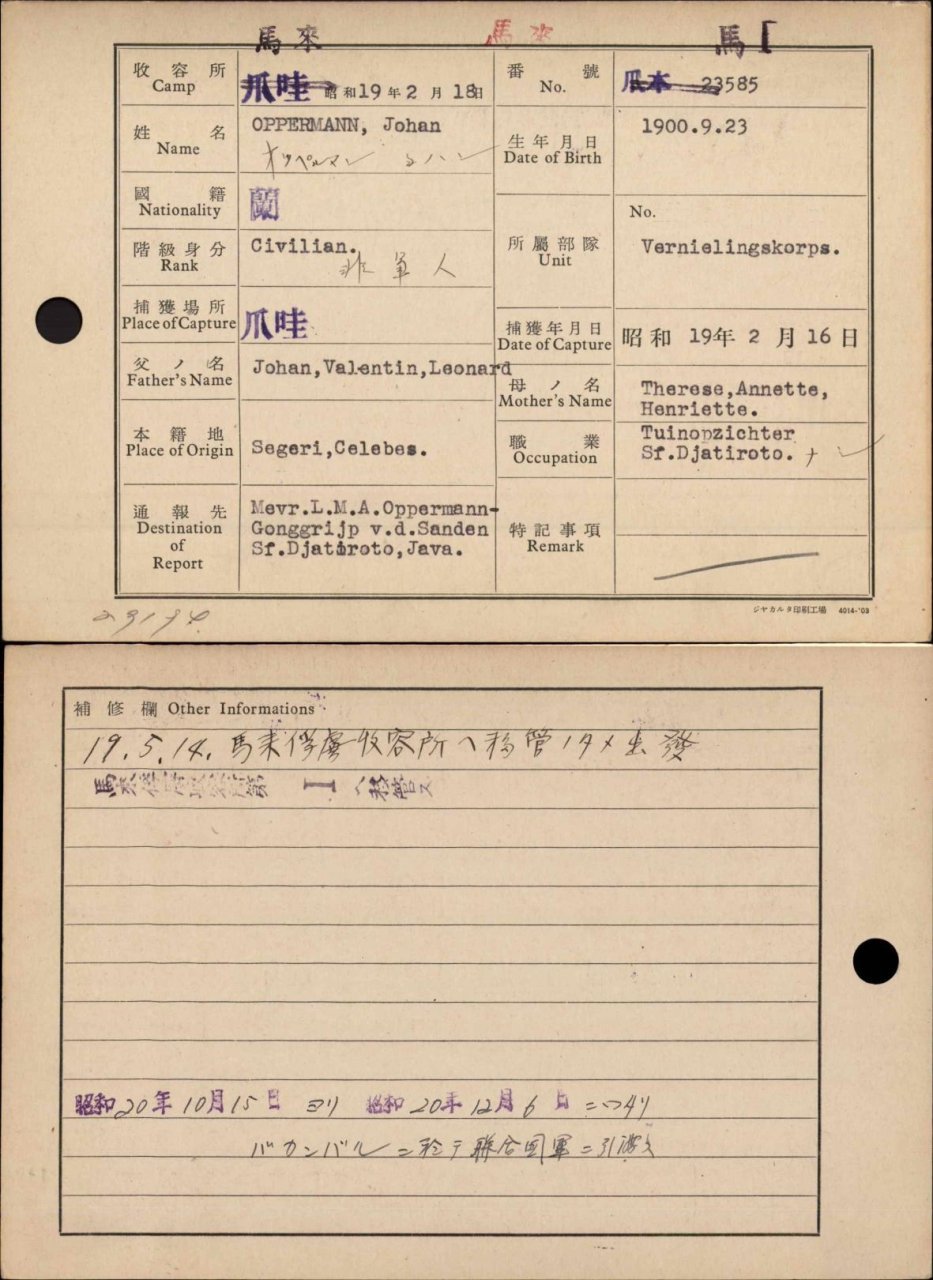 馬來 馬來 馬I
收容所 Camp 爪哇 昭和19年2月18日
番號 No. 爪本 23585
姓名 Name OPPERMANN, Johan
オッペルマン ヨハン
生年月日 Date of Birth 1900.9.23
國籍 Nationality 蘭
階級身分 Rank Civilian.
非軍人
所屬部隊 Unit No.
Vernielingskorps.
捕獲場所 Place of Capture 爪哇
捕獲年月日 Date of Capture 昭和19年2月16日
父ノ名 Father's Name Johan,Valentin,Leonard
母ノ名 Mother's Name Therese,Annette,
Henriette.
本籍地 Place of Origin Segeri,Celebes.
職業 Occupation Tuinopzichter
Sf.Djatiroto.
通報先 Destination of Report Mevr.L.M.A.Oppermann-
Gonggrijp v.d.Sanden
Sf.Djatiroto,Java.
特記事項 Remark
ジヤカルタ印刷工場 4014-'03
補修欄 Other Informations
19.5.14.馬来俘虜收容所ヘ移管ノタメ出發
馬來俘虜收容所第I ヘ移管ス
昭和20年10月15日 ヨリ 昭和20年12月6日
バカンバルニ於テ聯合國軍ニ引渡ス